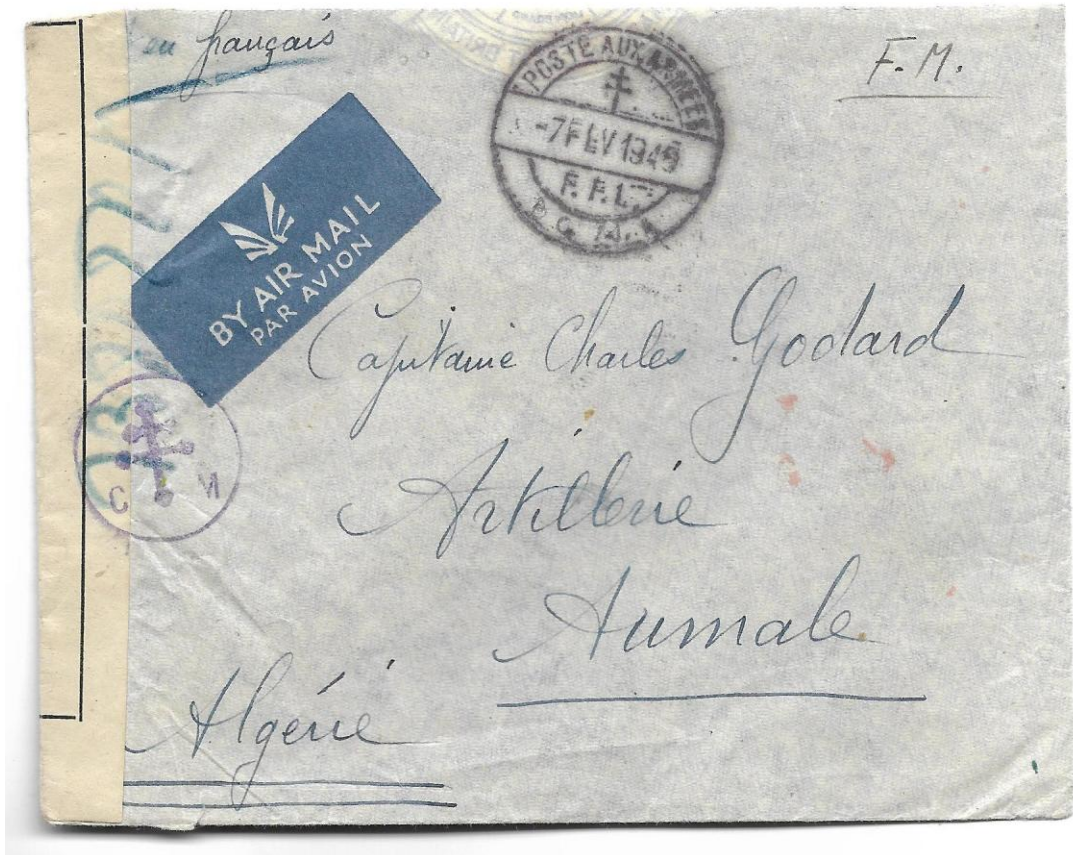 en français
F. M.
POSTE AUX ARMEES
-7 FEV 1945
F. F. L.
BY AIR MAIL
PAR AVION
Capitaine Charles Godard
C M
Artillerie
Aumale
Algérie